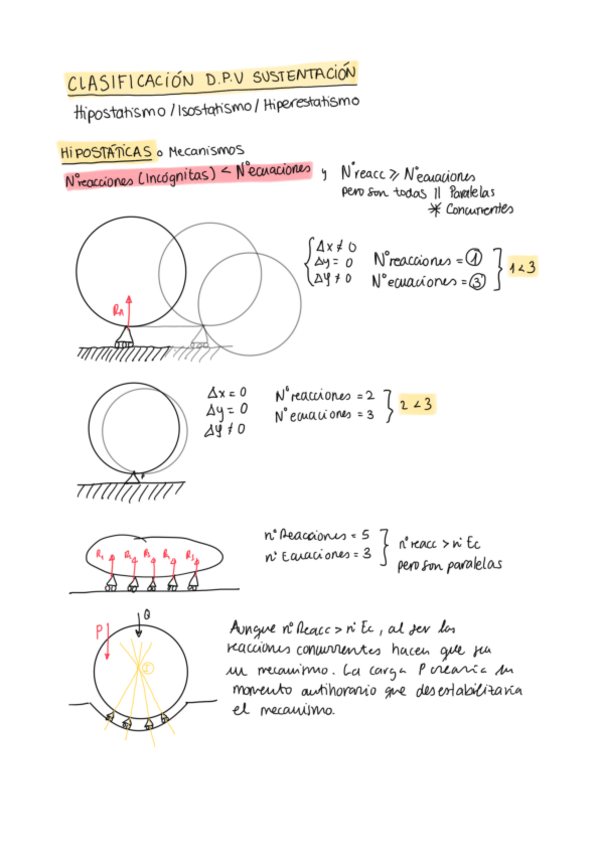 CLASIFICACIÓN D.P.V SUSTENTACIÓN
Hipostatismo / Isostatismo / Hiperestatismo
HIPOSTÁTICAS o Mecanismos
Nºreacciones (Incógnitas) < Nºecuaciones y Nºreacc ⩾ Nºecuaciones
pero son todas || Paralelas
* Concurrentes
Δx ≠ 0
Δy = 0 Nºreacciones = 1
Δφ ≠ 0 Nºecuaciones = 3
1 < 3
RA
Δx = 0 Nº reacciones = 2
Δy = 0 Nº ecuaciones = 3
Δφ ≠ 0
2 < 3
nº Reacciones = 5
nº Ecuaciones = 3
nº reacc > nº Ec
pero son paralelas
P Q
Aunque nº Reacc > nº Ec, al ser las
reacciones concurrentes hacen que sea
un mecanismo. La carga P crearía un
momento antihorario que desestabilizaría
el mecanismo.